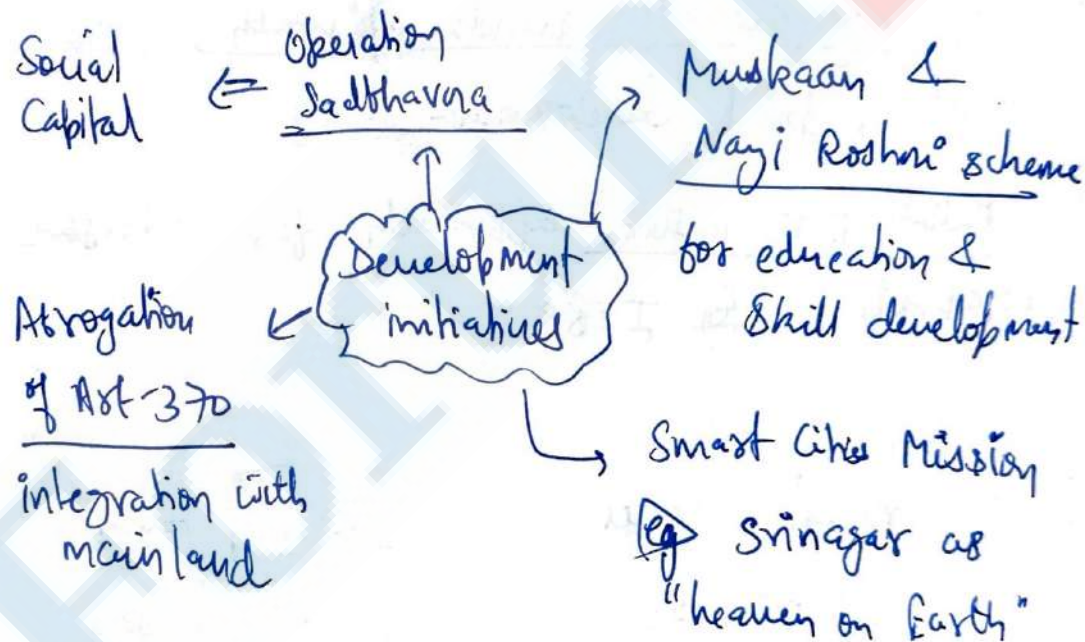 Social
Capital
⇐
Operation
Sadbhavna
Muskaan &
Nayi Roshni scheme
for education &
Skill development
Development
initiatives
Abrogation
of Art-370
integration with
mainland
Smart Cities Mission
eg Srinagar as
"heaven on Earth"
Forum